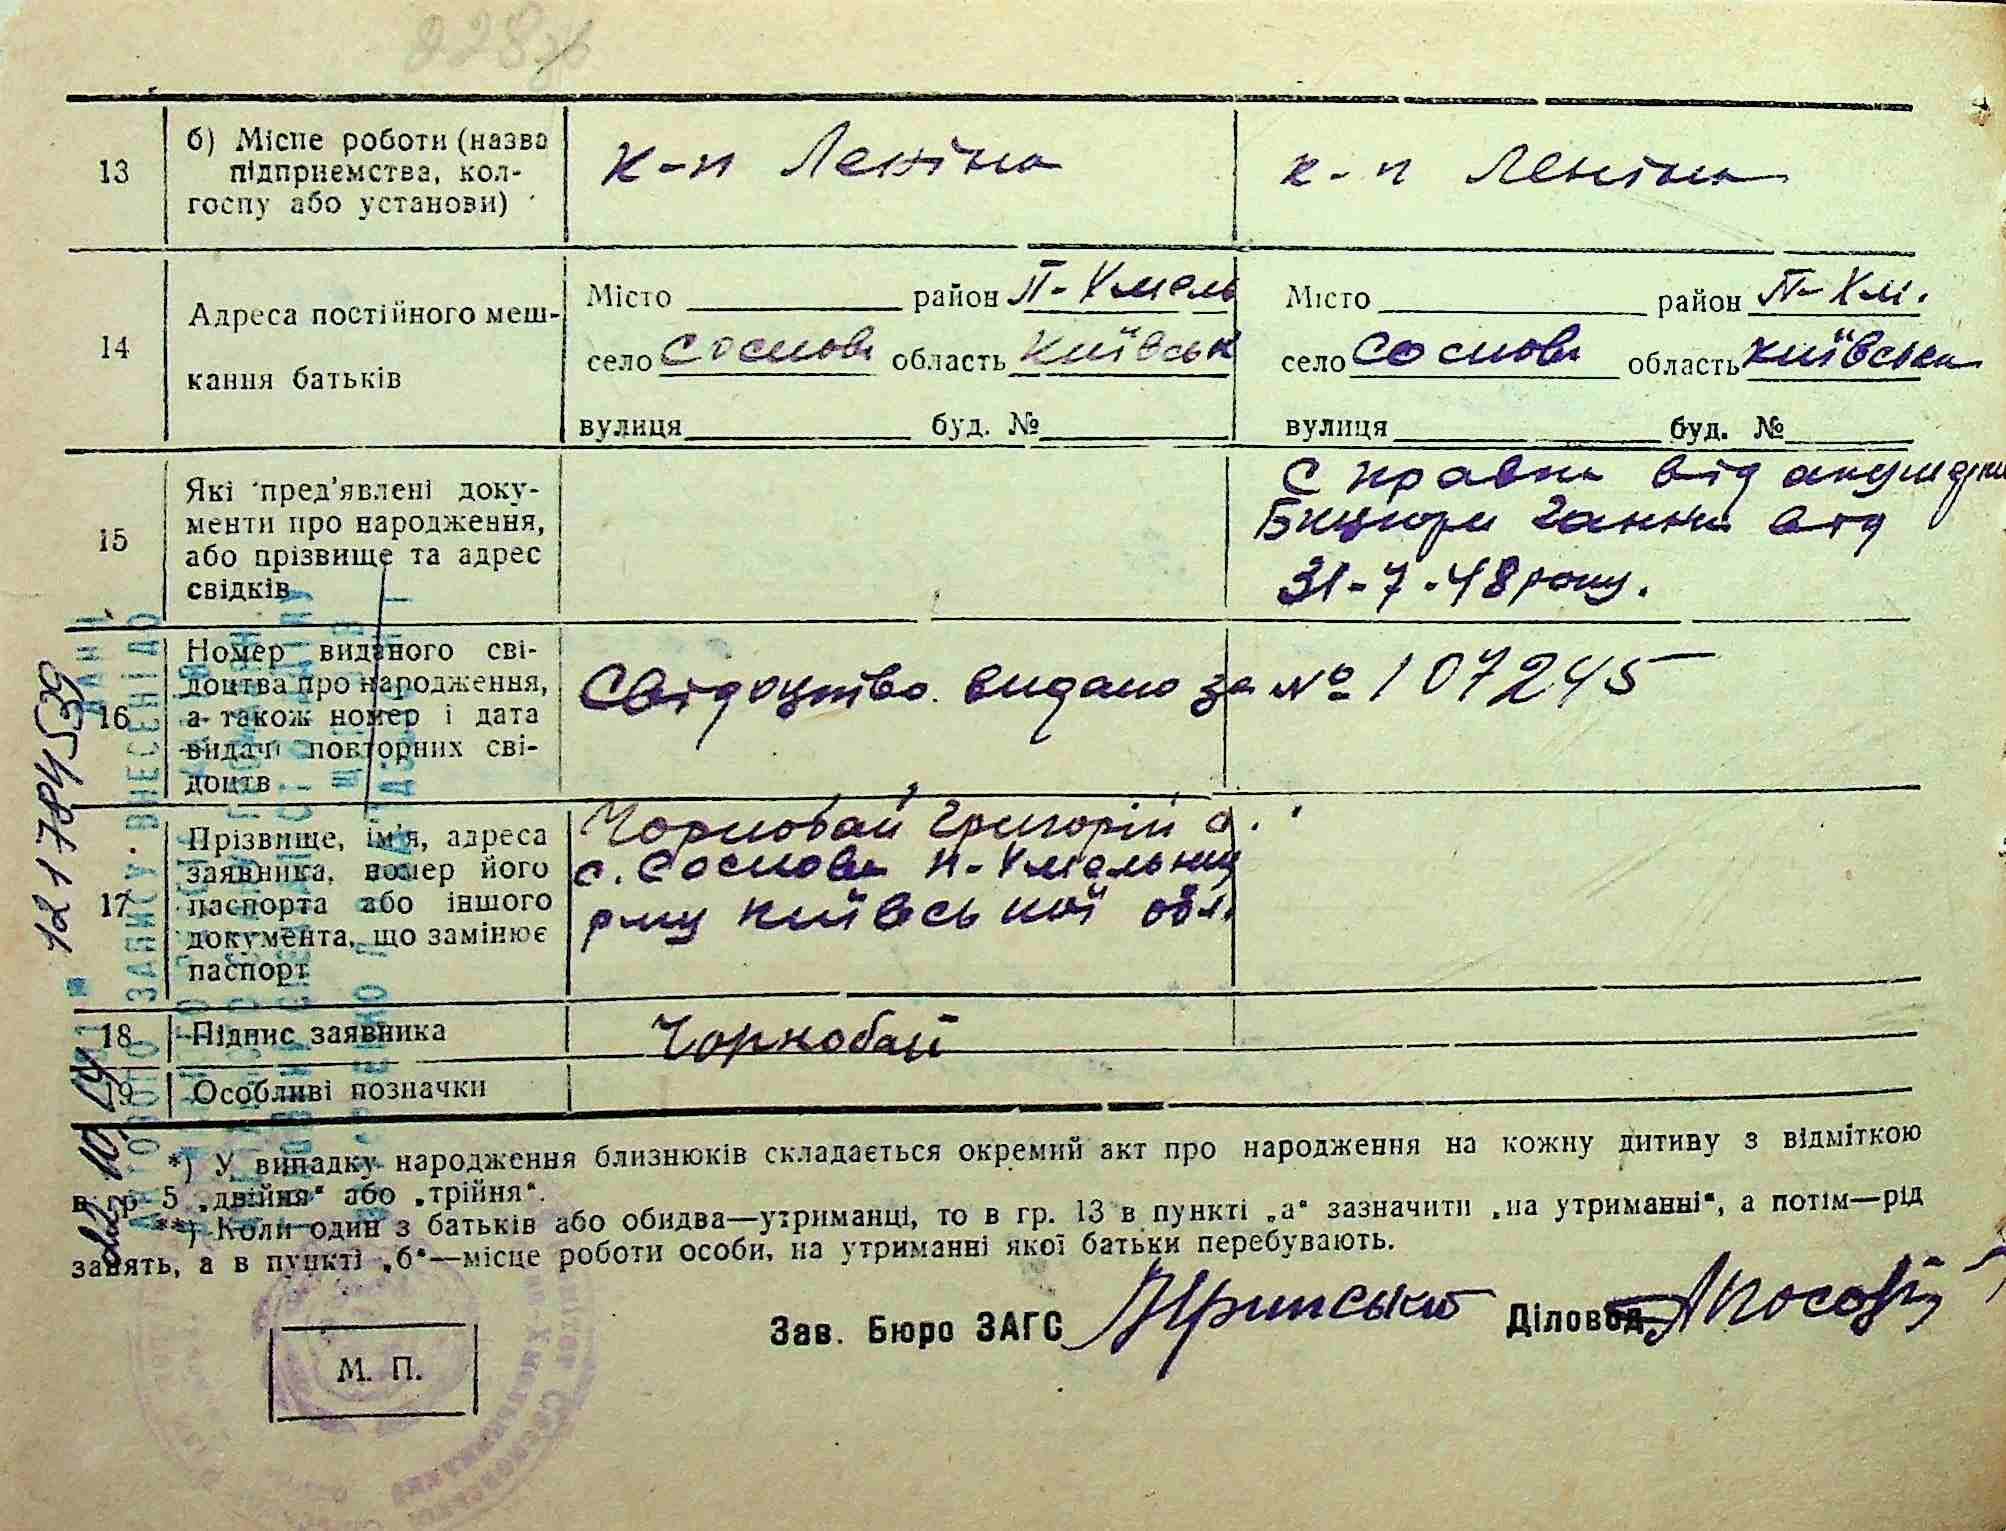 228
13
б) Місце роботи (назва
підприємства, кол-
госпу або установи)
к-п Леніна
к-п Леніна
14
Адреса постійного меш-
кання батьків
Місто район П-Хмель
село Соснова область Київськ
вулиця буд. №
Місто район П-Хм.
село Соснова область Київська
вулиця буд. №
15
Які пред'явлені доку-
менти про народження,
або прізвище та адрес
свідків
Справка від акушерки
Ганни від
31-7-48 року.
16
Номер виданого сві-
доцтва про народження,
а також номер і дата
видачі повторних сві-
доцтв
Свідоцтво видано за № 107245
17
Прізвище, ім'я, адреса
заявника, номер його
паспорта або іншого
документа, що замінює
паспорт
Чорнобай Григорій
с. Соснова П-Хмельниц
р-ну Київської обл.
18
Підпис заявника
Чорнобай
19
Особливі позначки
*) У випадку народження близнюків складається окремий акт про народження на кожну дитину з відміткою
в гр 5 „двійня“ або „трійня“.
**) Коли один з батьків або обидва—утриманці, то в гр. 13 в пункті „а“ зазначити „на утриманні“, а потім—рід
занять, а в пункті „б“—місце роботи особи, на утриманні якої батьки перебувають.
Зав. Бюро ЗАГС
Діловод
М. П.